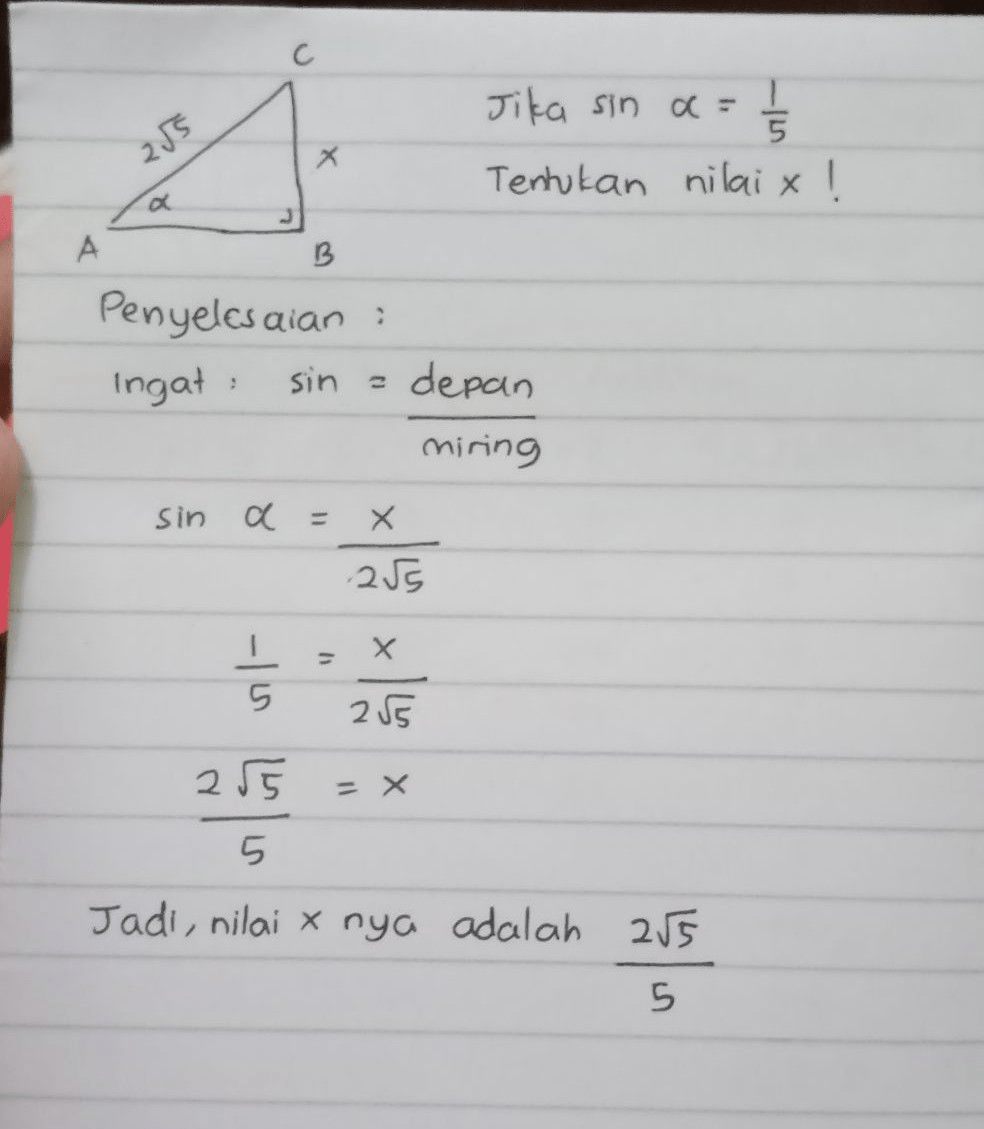 C
2√5
x
α
A
B
Jika sin α = 1/5
Tentukan nilai x !
Penyelesaian :
Ingat : sin = depan/miring
sin α = x/2√5
1/5 = x/2√5
2√5/5 = x
Jadi, nilai x nya adalah 2√5/5